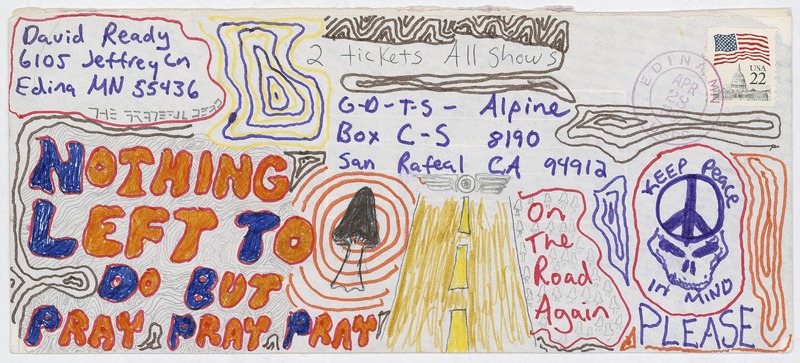 David Ready
6105 Jeffrey Ln
Edina MN 55436
THE GRATEFUL DEAD
2 tickets All shows
EDINA, MN
APR
USA
22
G-D-T-S- Alpine
Box C-S 8190
San Rafeal CA 94912
NOTHING
LEFT TO
DO BUT
PRAY PRAY PRAY
On
The
Road
Again
KEEP PEACE
IN MIND
PLEASE